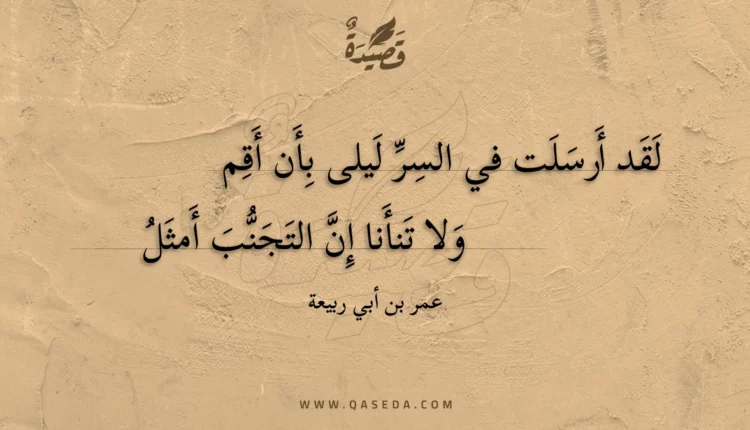 قَصِيدَةٌ
لَقَد أَرسَلَت في السِرِّ لَيلى بِأَن أَقِم
وَلا تَنأَنا إِنَّ التَجَنُّبَ أَمثَلُ
عمر بن أبي ربيعة
WWW.QASEDA.COM